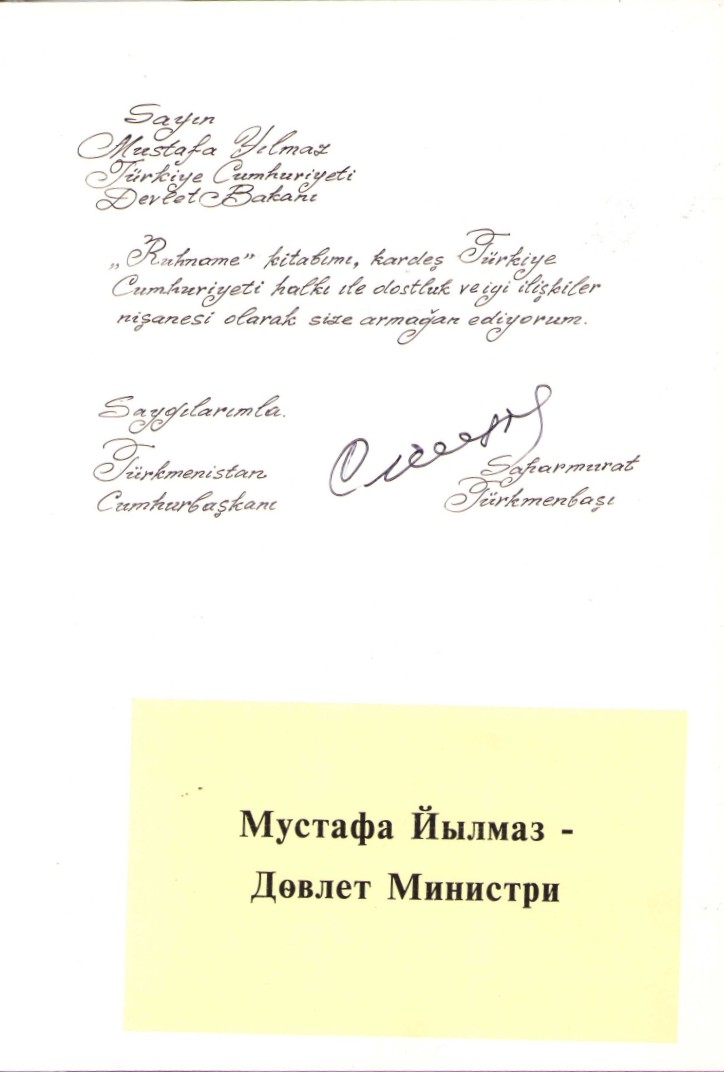 Sayın
Mustafa Yılmaz
Türkiye Cumhuriyeti
Devlet Bakanı
„Ruhname” kitabımı, kardeş Türkiye
Cumhuriyeti halkı ile dostluk ve iyi ilişkiler
nişanesi olarak size armağan ediyorum.
Saygılarımla.
Türkmenistan
Cumhurbaşkanı
Saparmurat
Türkmenbaşı
Мустафа Йылмаз -
Дөвлет Министри